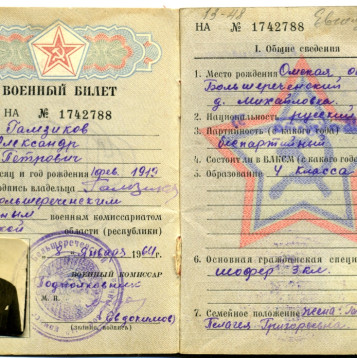 ВОЕННЫЙ БИЛЕТ
НА № 1742788
Гамзиков
Петрович
сяц и год рождения фев. 1912
одпись владельца Гамзиков
большереченским
ным военным комиссариатом
ской области (республики)
8 января 1964
ВОЕННЫЙ КОМИССАР
Подполковник
М. П.
(Евдокимов)
13-48
НА № 1742788
I. Общие сведения
1. Место рождения Омская, о
Большереченский
д. Михайловка
2. Национальность русский
3. Партийность (с какого года)
беспартийный
4. Состоит ли в ВЛКСМ (с какого года
5. Образование 4 класса
6. Основная гражданская специ
шофер 3 кл.
7. Семейное положение жена: Га
Пелагея Григорьевна